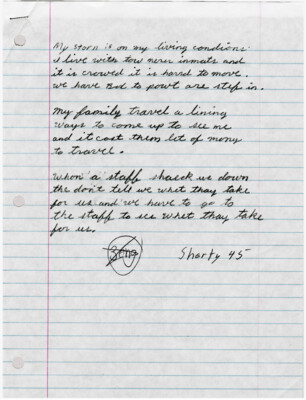 My storn is on my living condions
I live with tow nerer inmats and
it is crowed it is hard to move.
we have Bod to powt are stefs in.
My family travel a lining
ways to come up to see me
and it cost them lot of mony
to travel.
Whon a staff shaeck us down
the don't tell we whet thay take
for us and we have to go to
the staff to see whet thay take
for us.
Shorty 45